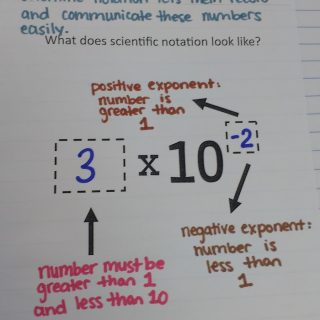 and communicate these numbers
easily.
What does scientific notation look like?
positive exponent:
number is
greater than
1
3 x 10 -2
number must be
greater than 1
and less than 10
negative exponent:
number is
less than
1